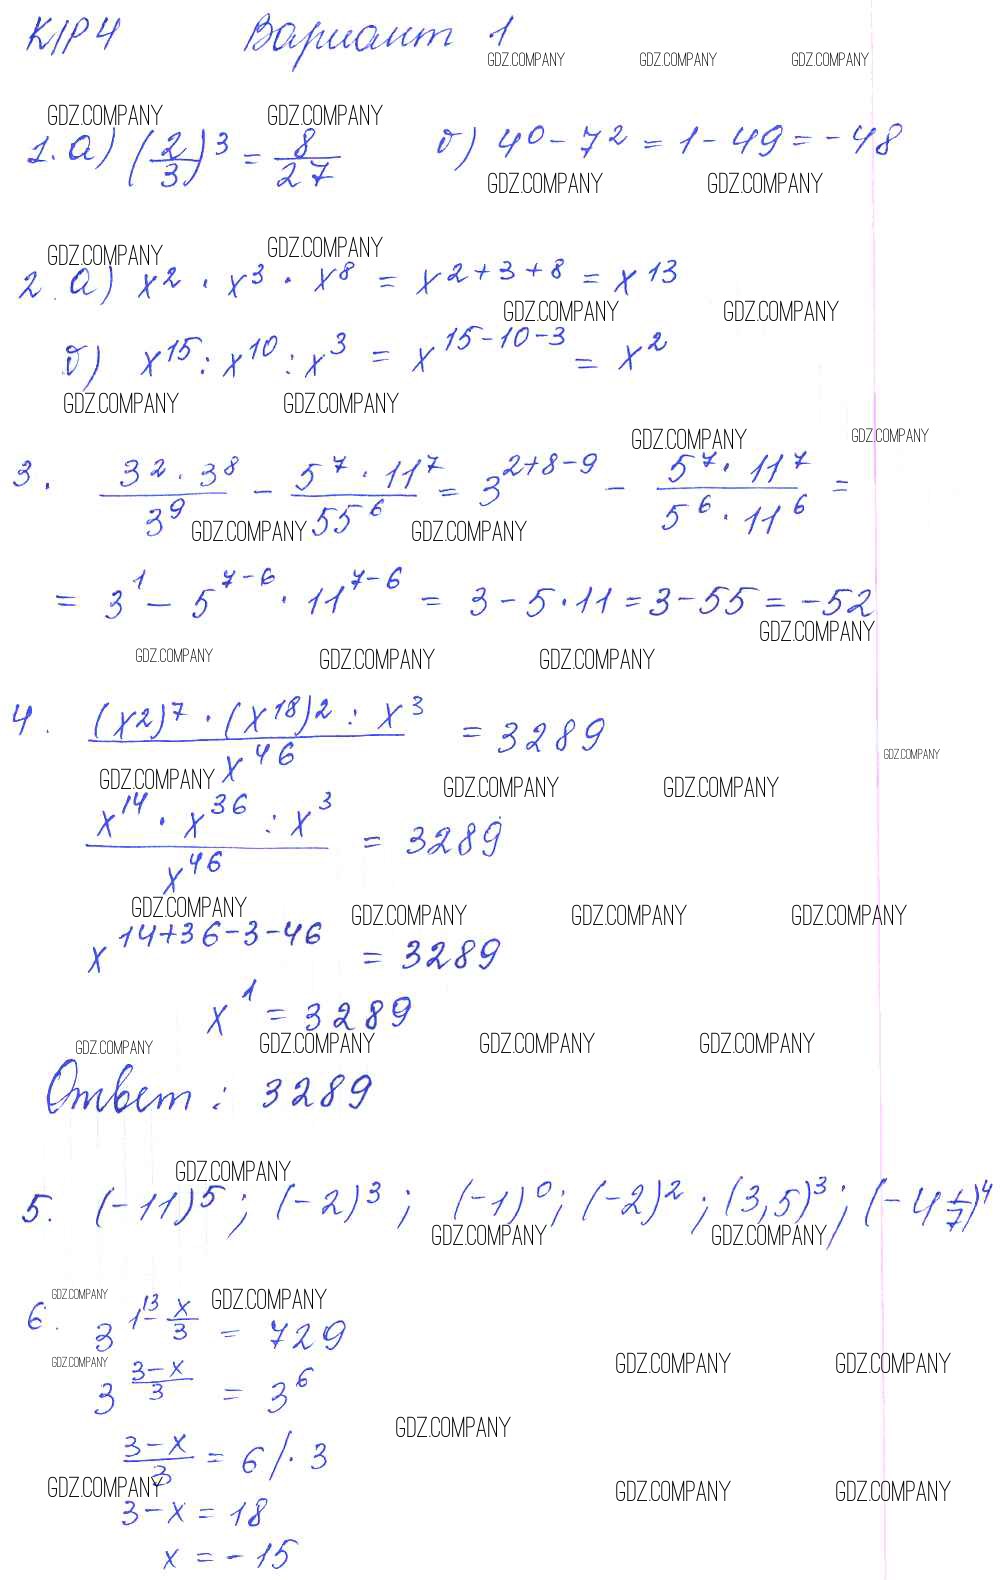 К/Р 4 Вариант 1
GDZ.COMPANY GDZ.COMPANY GDZ.COMPANY
GDZ.COMPANY GDZ.COMPANY
1. а) (2/3)³ = 8/27 б) 4⁰ - 7² = 1 - 49 = -48
GDZ.COMPANY GDZ.COMPANY
GDZ.COMPANY GDZ.COMPANY
2. а) x² · x³ · x⁸ = x²⁺³⁺⁸ = x¹³
GDZ.COMPANY GDZ.COMPANY
б) x¹⁵ : x¹⁰ : x³ = x¹⁵⁻¹⁰⁻³ = x²
GDZ.COMPANY GDZ.COMPANY
GDZ.COMPANY GDZ.COMPANY
3. (3² · 3⁸)/3⁹ - (5⁷ · 11⁷)/55⁶ = 3²⁺⁸⁻⁹ - (5⁷ · 11⁷)/(5⁶ · 11⁶) =
GDZ.COMPANY GDZ.COMPANY
= 3¹ - 5⁷⁻⁶ · 11⁷⁻⁶ = 3 - 5 · 11 = 3 - 55 = -52
GDZ.COMPANY
GDZ.COMPANY GDZ.COMPANY GDZ.COMPANY
4. ((x²)⁷ · (x¹⁸)² : x³)/x⁴⁶ = 3289
GDZ.COMPANY
GDZ.COMPANY GDZ.COMPANY GDZ.COMPANY
(x¹⁴ · x³⁶ : x³)/x⁴⁶ = 3289
GDZ.COMPANY GDZ.COMPANY GDZ.COMPANY GDZ.COMPANY
x¹⁴⁺³⁶⁻³⁻⁴⁶ = 3289
x¹ = 3289
GDZ.COMPANY GDZ.COMPANY GDZ.COMPANY GDZ.COMPANY
Ответ: 3289
GDZ.COMPANY
5. (-11)⁵; (-2)³; (-1)⁰; (-2)²; (3,5)³; (-4 1/7)⁴
GDZ.COMPANY GDZ.COMPANY
GDZ.COMPANY GDZ.COMPANY
6. 3^(1^(3 - x/3) = 729
GDZ.COMPANY GDZ.COMPANY GDZ.COMPANY
3^((3-x)/3) = 3⁶
GDZ.COMPANY
(3-x)/3 = 6 / · 3
GDZ.COMPANY GDZ.COMPANY GDZ.COMPANY
3 - x = 18
x = -15